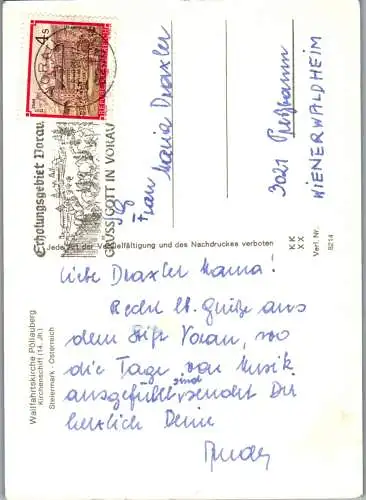 4 S
Erholungsgebiet Vorau
GRÜSS GOTT IN VORAU
Frau
Maria Draxler
3021 Preßbaum
WIENERWALDHEIM
Jede Art der Vervielfältigung und des Nachdruckes verboten
K K
X X
Verl. Nr.
8214
Wallfahrtskirche Pöllauberg
Kirchenschiff (14. Jh.)
Steiermark - Österreich
Liebe Draxler Mama!
Recht lb. Grüße aus
dem Stift Vorau, wo
die Tage von Musik
ausgefüllt sind, sendet Dir
herzlich Deine